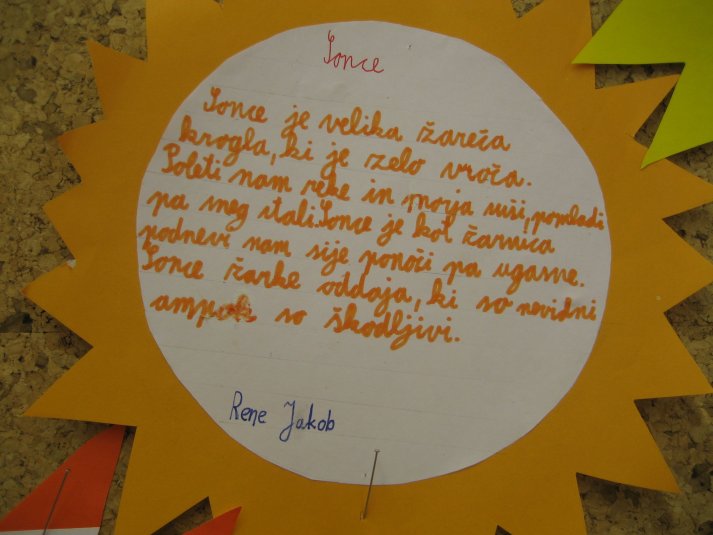 Sonce
Sonce je velika žareča
krogla, ki je zelo vroča.
Poleti nam reke in morja suši, pomladi
pa sneg stali. Sonce je kot žarnica
podnevi nam sije ponoči pa ugasne.
Sonce žarke oddaja, ki so nevidni
so škodljivi.
Rene Jakob